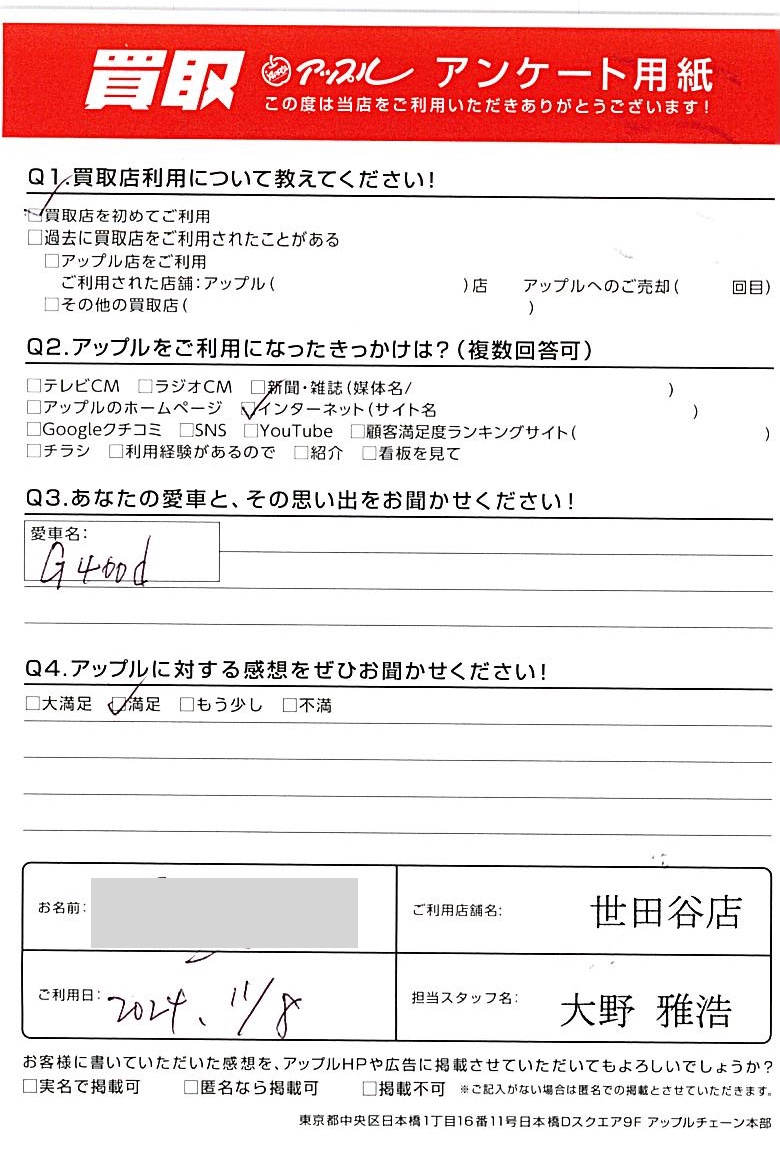 買取 アップル アンケート用紙
この度は当店をご利用いただきありがとうございます!
Q1.買取店利用について教えてください!
☑買取店を初めてご利用
□過去に買取店をご利用されたことがある
□アップル店をご利用
ご利用された店舗:アップル( )店 アップルへのご売却( 回目)
□その他の買取店( )
Q2.アップルをご利用になったきっかけは?(複数回答可)
□テレビCM □ラジオCM □新聞・雑誌(媒体名/ )
□アップルのホームページ ☑インターネット(サイト名 )
□Googleクチコミ □SNS □YouTube □顧客満足度ランキングサイト( )
□チラシ □利用経験があるので □紹介 □看板を見て
Q3.あなたの愛車と、その思い出をお聞かせください!
愛車名:
G400d
Q4.アップルに対する感想をぜひお聞かせください!
□大満足 ☑満足 □もう少し □不満
お名前:
ご利用店舗名: 世田谷店
ご利用日: 2024. 11/8
担当スタッフ名: 大野 雅浩
お客様に書いていただいた感想を、アップルHPや広告に掲載させていただいてもよろしいでしょうか?
□実名で掲載可 □匿名なら掲載可 □掲載不可 ※ご記入がない場合は匿名での掲載とさせていただきます。
東京都中央区日本橋1丁目16番11号日本橋Dスクエア9F アップルチェーン本部